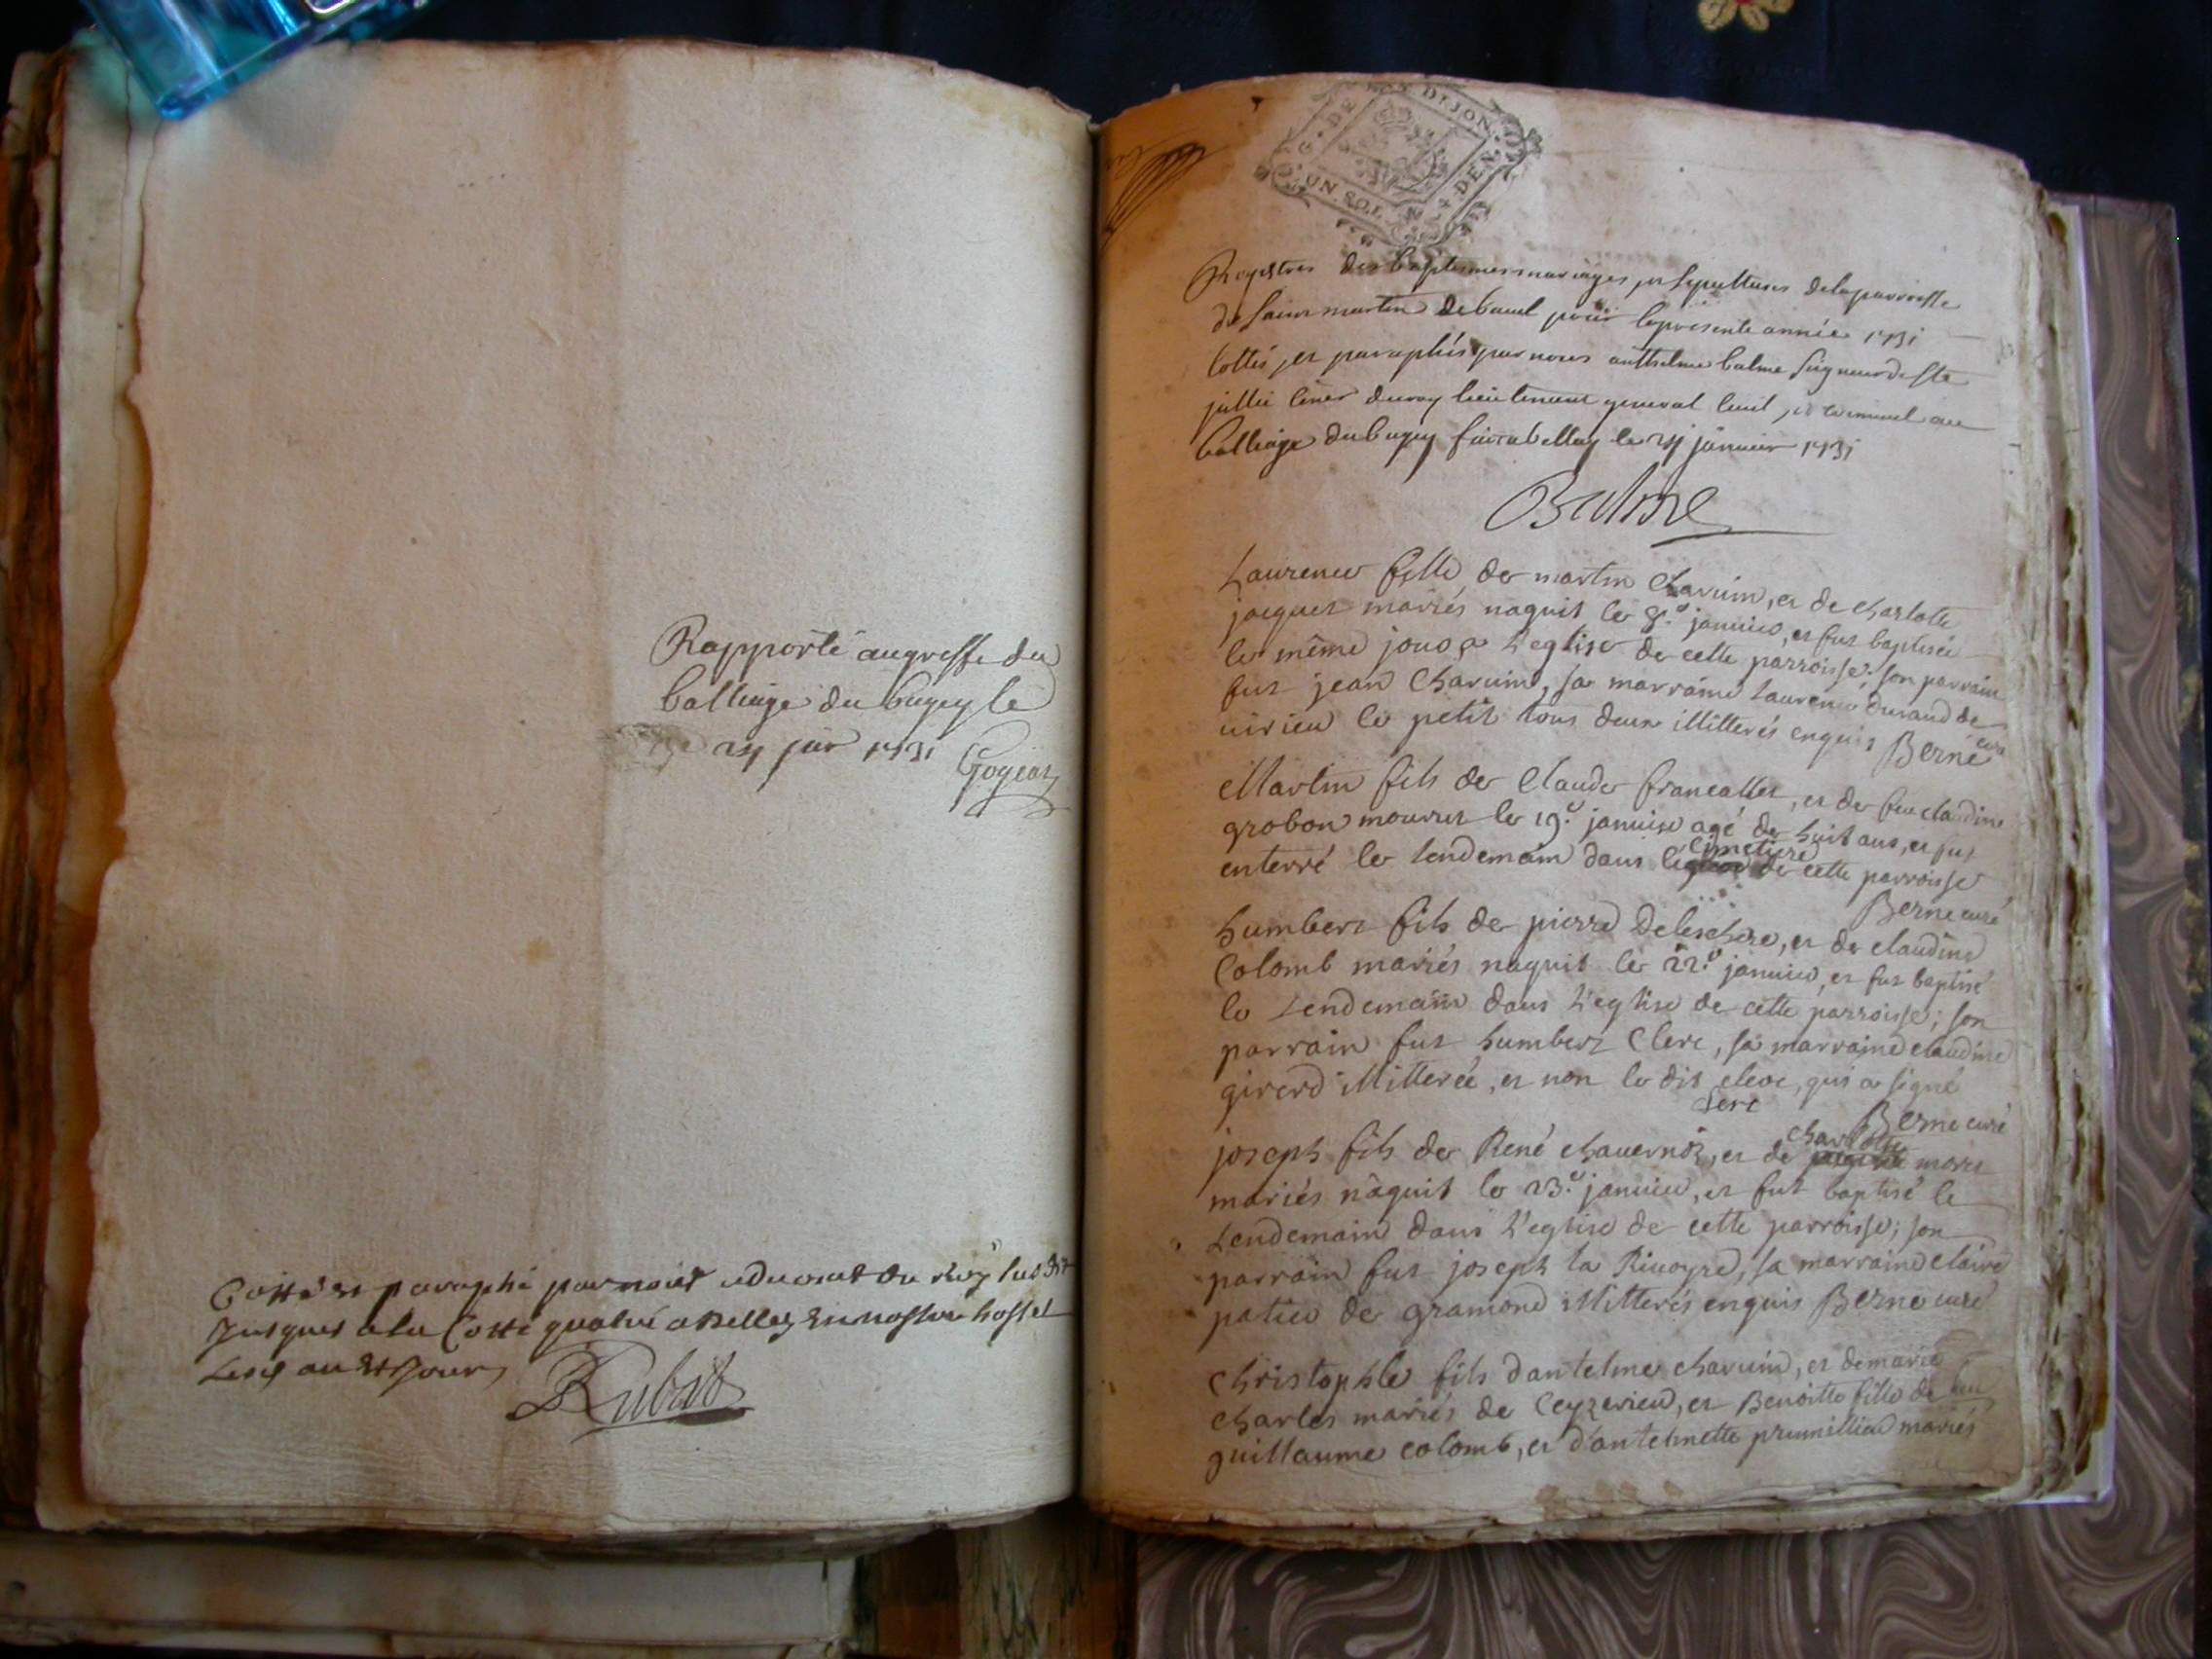 Rapporté au greffe du
balliage du bugey le
24 jer 1731
Gogeat
Cotté et paraphé par nous aduocat du Roy
jusques a la Cotte quatre a Belley en nostre hostel
les an et jour
Rubat
DE DIJON
UN SOL DEN.
Registres des baptesmes mariages, et sepultures de la parroisse
de saint martin de bauel pour la presente année 1731
cottés, et paraphés par nous anthelme balme seigneur de ste
jullie coner du roy lieutenant general ciuil, et criminel au
balliage du bugey fait a belley le 24 januier 1731
Balme
Laurence fille de martin Charuin, et de charlotte
jacquet mariés naquit le 8.e januier, et fut baptisée
le même jour a l'eglise de cette parroisse; son parrain
fut jean Charuin, sa marraine laurence durand de
uirieu le petit tous deux illitterés enquis Berne curé
Martin fils de Claude francallet, et de feu claudine
grobon mourut le 19.e januier agé de huit ans, et fut
cimetiere
enterré le lendemain dans l'eglise de cette parroisse
Berne curé
humbert fils de pierre Deleschere, et de claudine
Colomb mariés naquit le 22.e januier, et fut baptisé
le Lendemain dans l'eglise de cette parroisse; son
parrain fut humbert Clerc, sa marraine claudine
girerd illitterée, et non le dit clerc, qui a signé
Clerc
Berne curé
charlotte
joseph fils de René chauernoz, et de moret
mariés naquit le 23.e januier, et fut baptisé le
Lendemain dans l'eglise de cette parroisse; son
parrain fut joseph la Riuoyre, sa marraine claire
patieu de gramond illitterés enquis Berne curé
Christophle fils d'antelme charuin, et de marie
charles mariés de Ceyzerieu, et Benoitte fille de feu
guillaume colomb, et d'antelmette prumillieu mariés